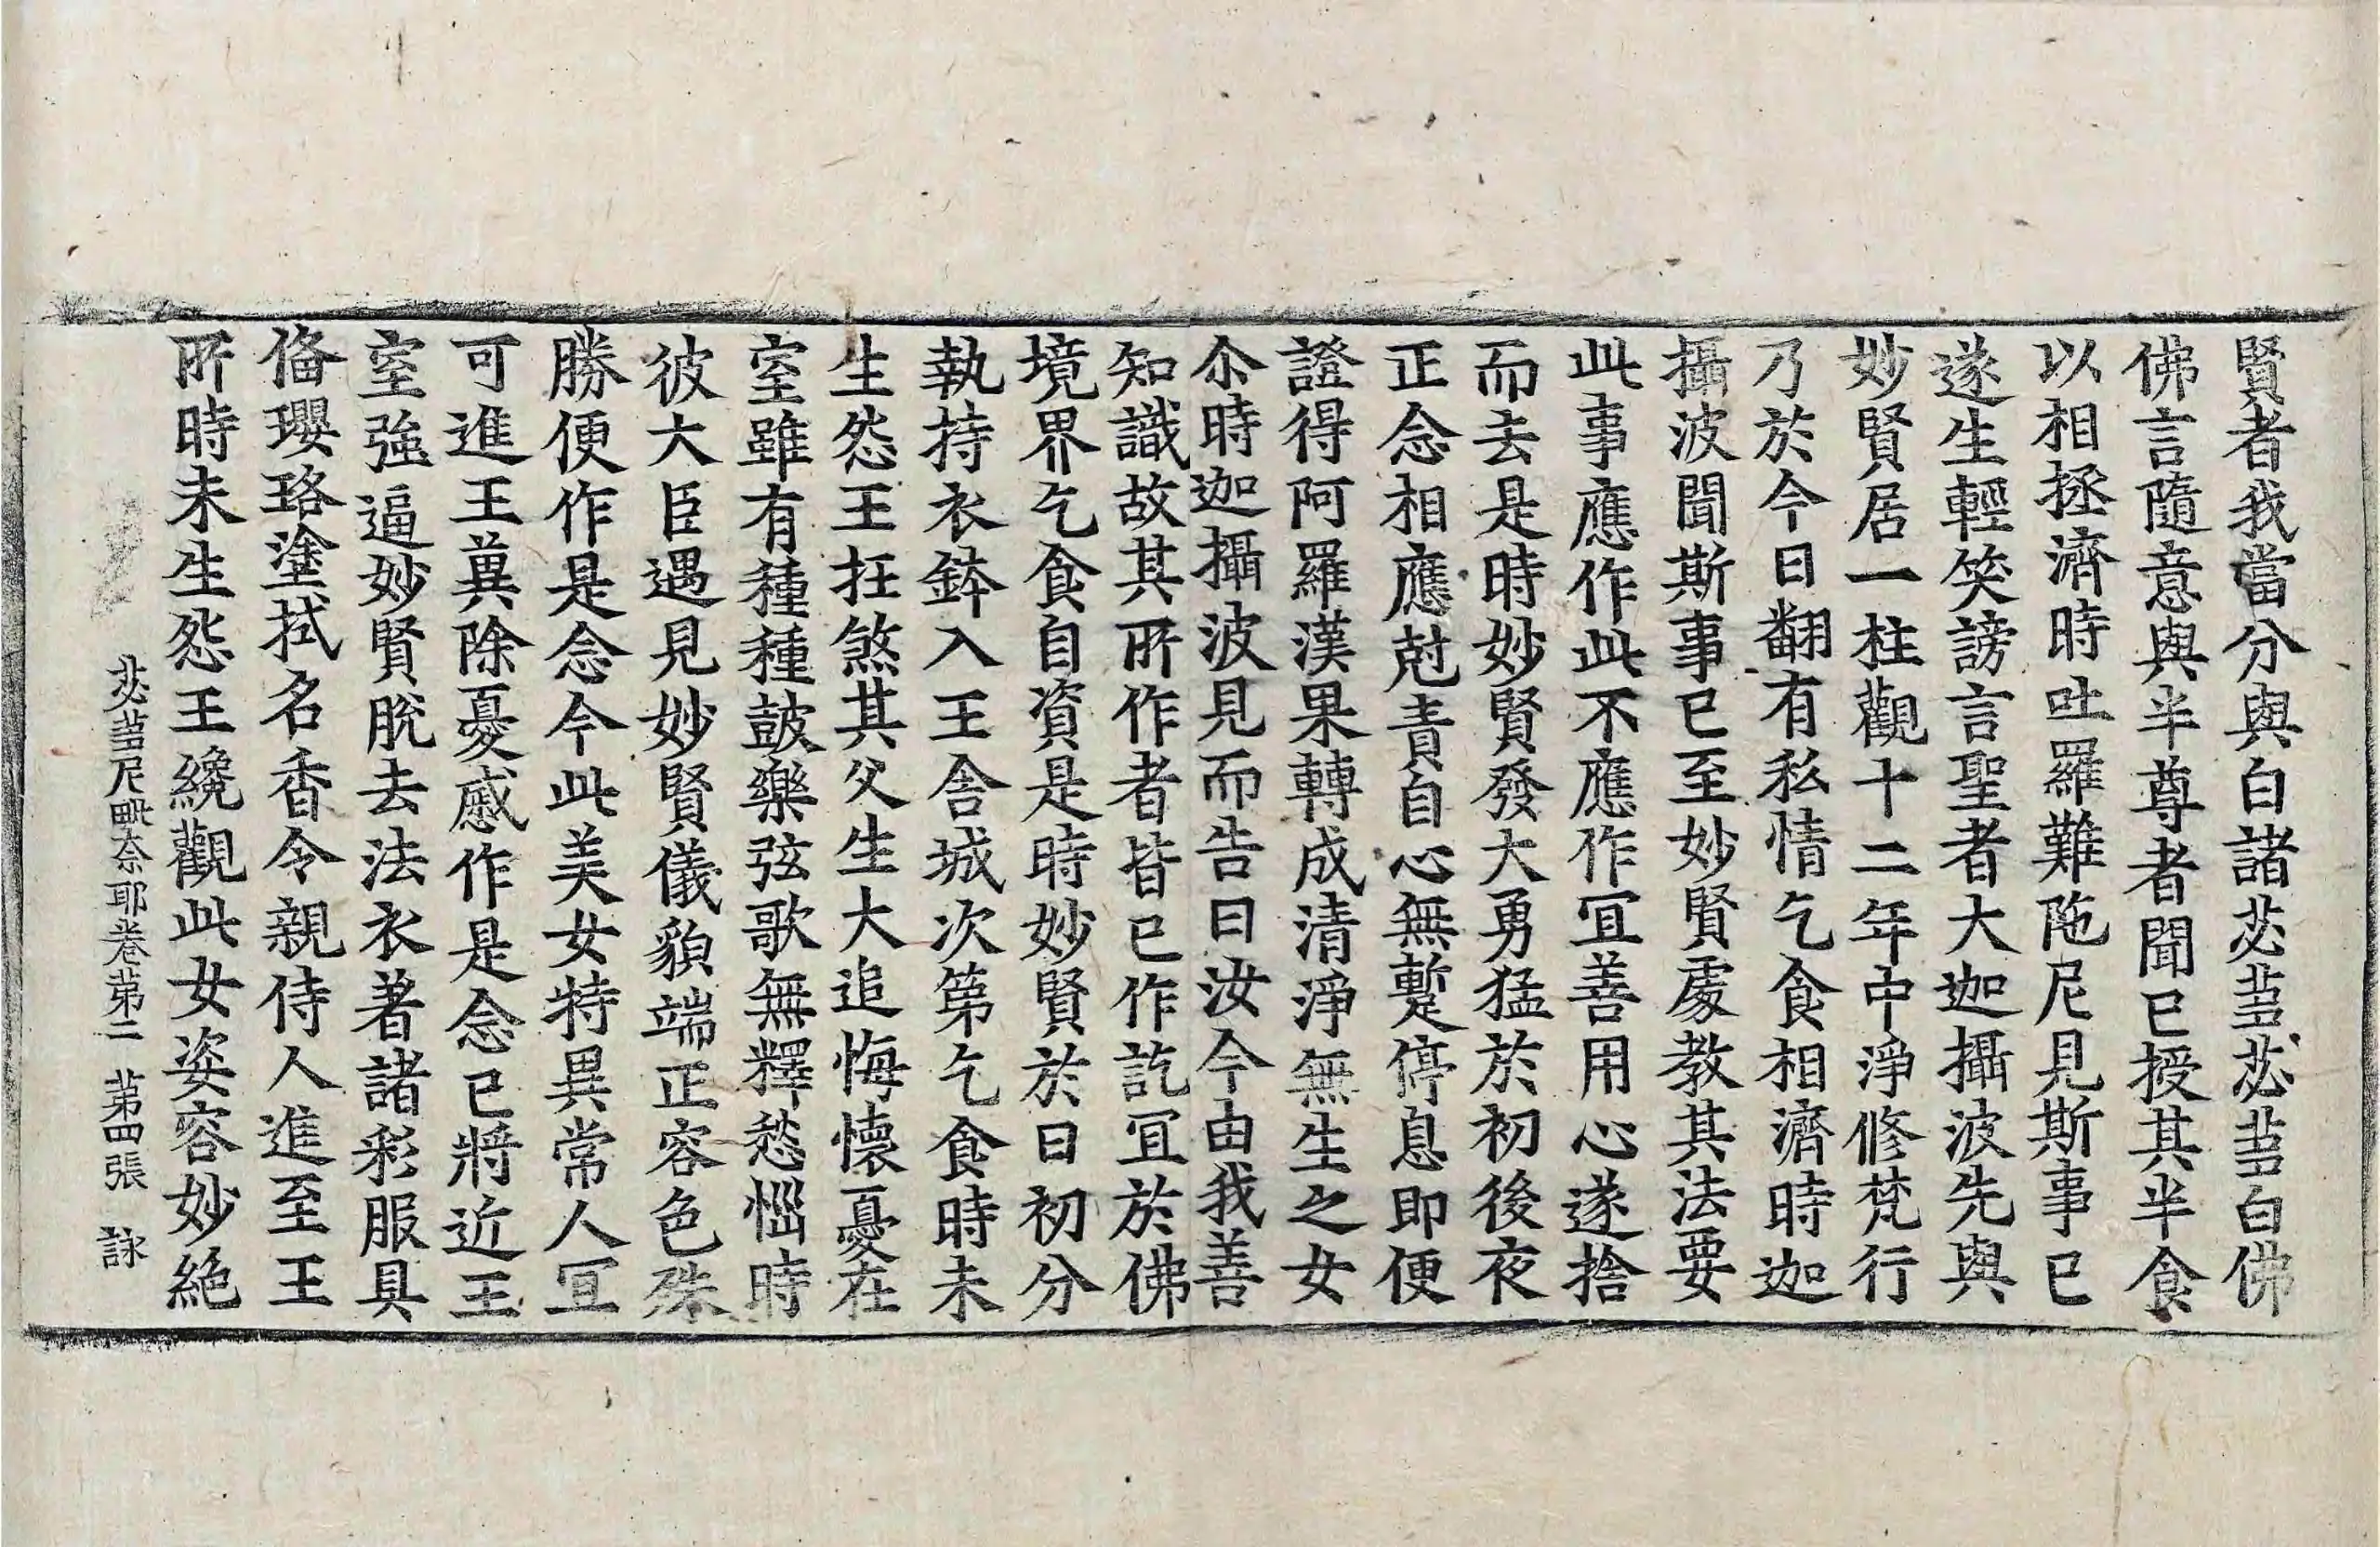 賢者我當分與白諸苾蒭苾蒭白佛
佛言隨意與半尊者聞已授其半食
以相拯濟時吐羅難陁尼見斯事已
遂生輕笑謗言聖者大迦攝波先與
妙賢居一柱觀十二年中淨修梵行
乃於今日翻有私情乞食相濟時迦
攝波聞斯事已至妙賢處教其法要
此事應作此不應作冝善用心遂捨
而去是時妙賢發大勇猛於初後夜
正念相應尅責自心無蹔停息即便
證得阿羅漢果轉成清淨無生之女
尒時迦攝波見而告曰汝今由我善
知識故其所作者皆已作訖冝於佛
境界乞食自資是時妙賢於日初分
執持衣鉢入王舍城次第乞食時未
生怨王抂煞其父生大追悔懷憂在
室雖有種種鼓樂弦歌無釋愁惱時
彼大臣遇見妙賢儀貌端正容色殊
勝便作是念今此美女特異常人冝
可進王兾除憂慼作是念已將近王
室強逼妙賢脫去法衣著諸彩服具
俻瓔珞塗拭名香令親侍人進至王
所時未生怨王纔觀此女姿容妙絶
苾蒭尼毗奈耶卷苐二　苐四張　詠